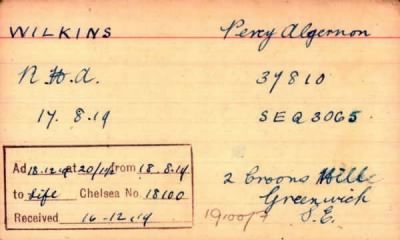 WILKINS Percy Algernon
R.H.A. 37810
17. 8.19 SEQ 3065.
Ad 18.12.19 at 20/ from 18.8.19
to Life Chelsea No. 18100
Received 16-12.19
2 Crooms Hill
Greenwich
S.E.